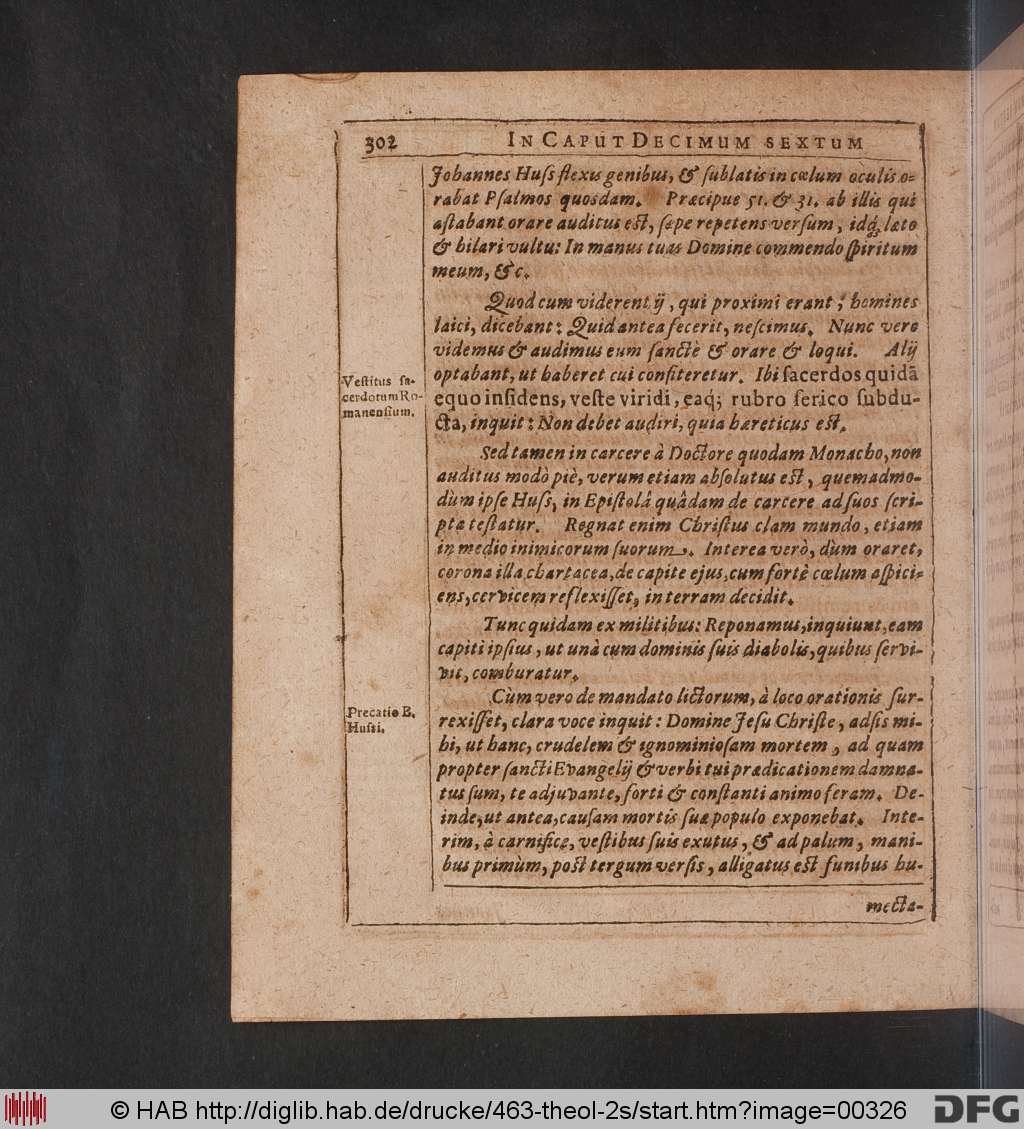 302 IN CAPUT DECIMUM SEXTUM
Johannes Huſs flexis genibus, & ſublatis in cœlum oculis o=
rabat Pſalmos quosdam. Præcipue 51. & 31. ab illis qui
aſtabant orare auditus eſt, ſæpe repetens verſum, idq́; læto
& hilari vultu: In manus tuas Domine commendo ſpiritum
meum, &c.
Quod cum viderent ij, qui proximi erant, homines
laici, dicebant: Quid antea fecerit, neſcimus. Nunc vero
videmus & audimus eum ſanctè & orare & loqui. Alij
optabant, ut haberet cui confiteretur. Ibi ſacerdos quidā
Veſtitus ſa-
cerdotum Ro-
manenſium.
equo inſidens, veſte viridi, eaq́; rubro ſerico ſubdu-
cta, inquit: Non debet audiri, quia hæreticus eſt.
Sed tamen in carcere à Doctore quodam Monacho, non
auditus modò piè, verum etiam abſolutus eſt, quemadmo-
dùm ipſe Huſs, in Epiſtolâ quâdam de carcere ad ſuos ſcri-
pta teſtatur. Regnat enim Chriſtus clam mundo, etiam
in medio inimicorum ſuorum. Interea verò, dùm oraret,
corona illa chartacea, de capite ejus, cum fortè cœlum aſpici=
ens, cervicem reflexiſſet, in terram decidit.
Tunc quidam ex militibus: Reponamus, inquiunt, eam
capiti ipſius, ut unà cum dominis ſuis diabolis, quibus ſervi-
vit, comburatur.
Precatio B.
Huſſi.
Cùm vero de mandato lictorum, à loco orationis ſur-
rexiſſet, clara voce inquit: Domine Jeſu Chriſte, adſis mi-
hi, ut hanc, crudelem & ignominioſam mortem, ad quam
propter ſancti Evangelij & verbi tui prædicationem damna-
tus ſum, te adjuvante, forti & conſtanti animo feram. De-
inde, ut antea, cauſam mortis ſuæ populo exponebat. Inte-
rim, à carnifice, veſtibus ſuis exutus, & ad palum, mani-
bus primùm, poſt tergum verſis, alligatus eſt funibus hu-
mecta-
© HAB http://diglib.hab.de/drucke/463-theol-2s/start.htm?image=00326
DFG